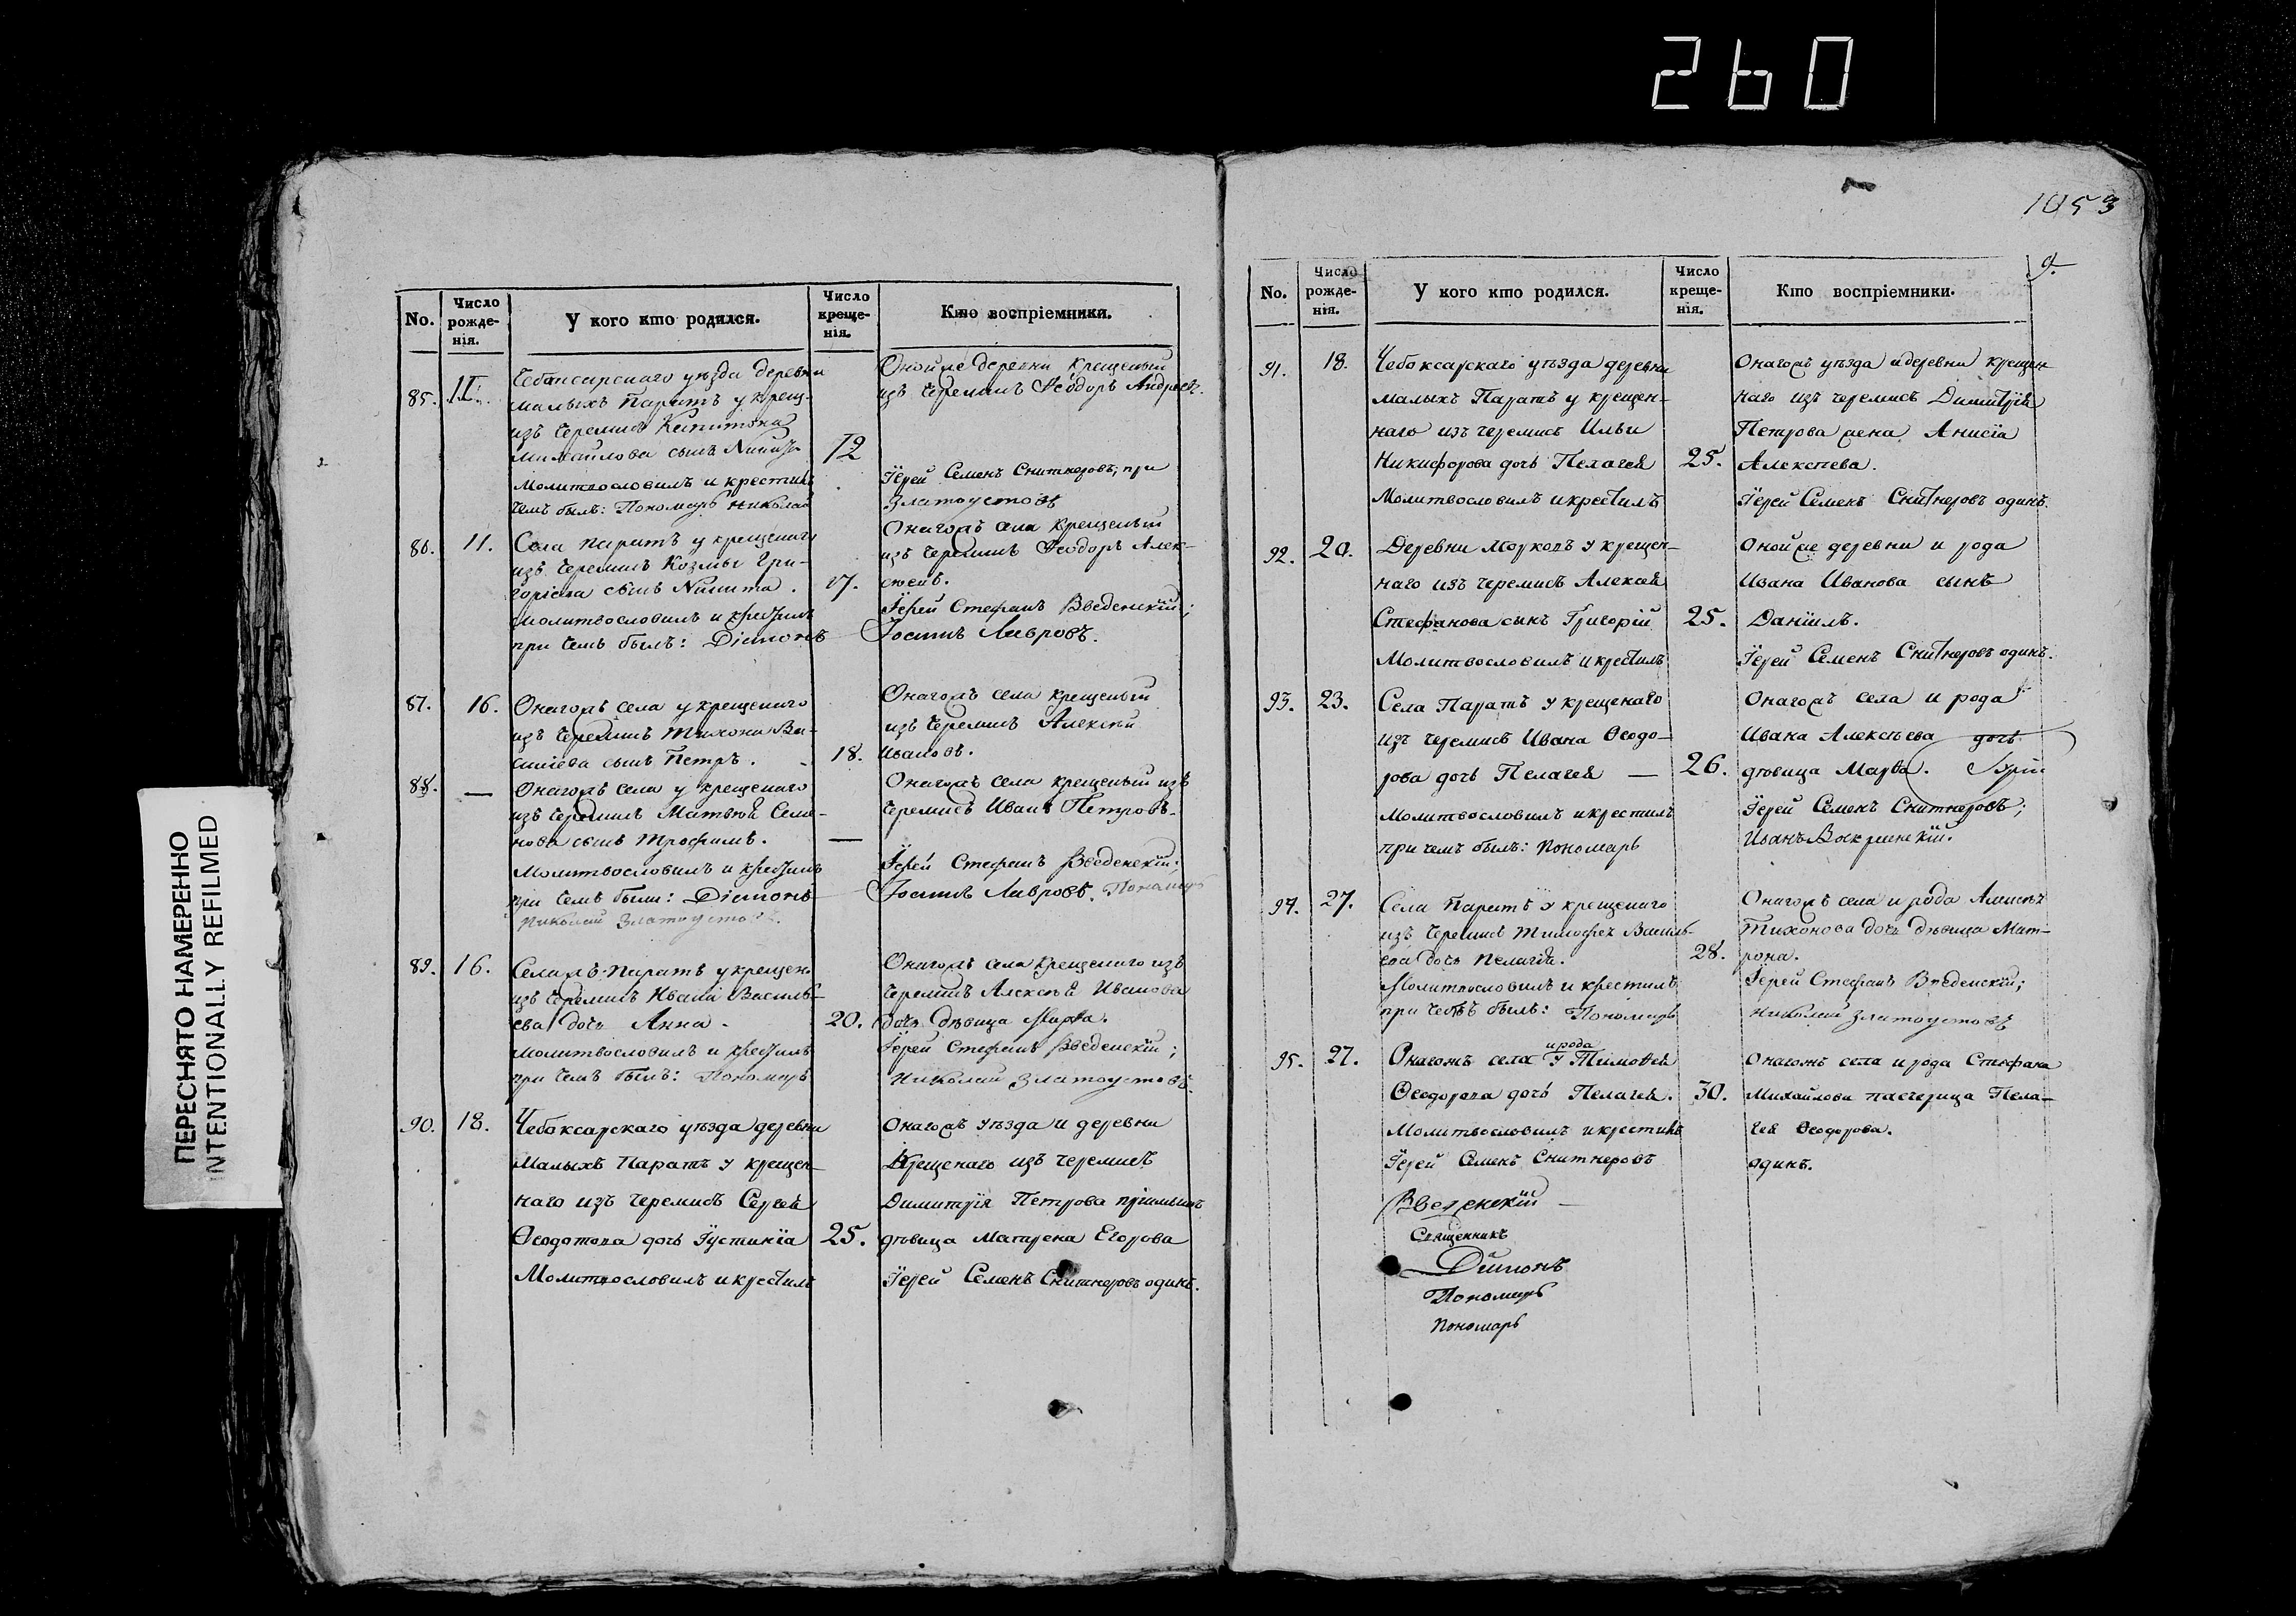 260
1053
9.
ПЕРЕСНЯТО НАМЕРЕННО
INTENTIONALLY REFILMED
No.
Число рожде-нія.
У кого кто родился.
Число креще-нія.
Кто воспріемники.
85. 11.
Чебоксарскаго уѣзда деревни
малыхъ Паратъ у крещ-
изъ черемисъ Капитона
Михайлова сынъ
12
молитвословилъ и крестилъ
чемъ былъ: Пономарь Николай
Оной же деревни крещеный
изъ черемисъ Ѳеодоръ Андреевъ.
Іерей Семенъ Снитнеровъ; при
Златоустовъ
86. 11.
Села Паратъ у крещенаго
изъ черемисъ Козмы Гри-
горіева сынъ Никита.
17.
молитвословилъ и крестилъ
при чемъ былъ: Діаконъ
Онагожъ села крещеный
изъ черемисъ Ѳеодоръ Алек-
сѣевъ.
Іерей Стефанъ Введенскій;
Лавровъ.
87. 16.
Онагожъ села у крещенаго
изъ черемисъ Тихона Ва-
силіева сынъ Петръ.
18.
Онагожъ села крещеный
изъ черемисъ Алексѣй
Ивановъ.
88. —
Онагожъ села у крещенаго
изъ черемисъ Матвѣя Семе-
нова сынъ Трофимъ.
—
молитвословилъ и крестилъ
при чемъ были: Діаконъ
Николай Златоустовъ.
Онагожъ села крещеный изъ
черемисъ Иванъ Петровъ.
Іерей Стефанъ Введенскій;
Лавровъ. Пономарь
89. 16.
Села Паратъ у крещен.
изъ черемисъ Ивана Василь-
ева дочь Анна.
20.
молитвословилъ и крестилъ
при чемъ былъ: Пономарь
Онагожъ села крещенаго изъ
черемисъ Алексѣя Иванова
дочь дѣвица Марѳа.
Іерей Стефанъ Введенскій;
Николай Златоустовъ.
90. 18.
Чебоксарскаго уѣзда деревни
Малыхъ Паратъ у крещен-
наго изъ черемисъ Сергея
Ѳеодотова дочь Іустинія
25.
Молитвословилъ и крестилъ
Онагожъ уѣзда и деревни
крещенаго изъ черемисъ
Димитрія Петрова пріимышъ
дѣвица Матрена Егорова
Іерей Семенъ Снитнеровъ одинъ.
No.
Число рожде-нія.
У кого кто родился.
Число креще-нія.
Кто воспріемники.
91. 18.
Чебоксарскаго уѣзда деревни
малыхъ Паратъ у крещен-
наго изъ черемисъ Ильи
Никифорова дочь Пелагея
25.
Молитвословилъ и крестилъ
Онагожъ уѣзда и деревни крещен-
наго изъ черемисъ Димитрія
Петрова жена Анисія
Алексѣева.
Іерей Семенъ Снитнеровъ одинъ.
92. 20.
Деревни Моркъ у крещен-
наго изъ черемисъ Алексѣя
Стефанова сынъ Григорій
25.
Молитвословилъ и крестилъ
Оной же деревни и рода
Ивана Иванова сынъ
Даніилъ.
Іерей Семенъ Снитнеровъ одинъ.
93. 23.
Села Паратъ у крещенаго
изъ черемисъ Ивана Ѳеодо-
рова дочь Пелагея —
26.
Молитвословилъ и крестилъ
при чемъ былъ: Пономарь
Онагожъ села и рода
Ивана Алексѣева дочь
дѣвица Марѳа. При
Іерей Семенъ Снитнеровъ;
Иванъ Воскрѣнскій.
94. 27.
Села Паратъ у крещенаго
изъ черемисъ Тимофея Василь-
ева дочь Пелагія.
28.
Молитвословилъ и крестилъ
при чемъ былъ: Пономарь
Онагожъ села и рода Алексѣя
Тихонова дочь дѣвица Мат-
рона.
Іерей Стефанъ Введенскій;
Николай Златоустовъ
95. 27.
Онагожъ села и рода у Тимоѳея
Ѳеодорова дочь Пелагея.
30.
Молитвословилъ и крестилъ
Іерей Семенъ Снитнеровъ
Онагожъ села и рода Стефана
Михайлова падчерица Пела-
гея Ѳеодорова.
одинъ.
Введенскій
Священникъ
Діаконъ
Пономарь
Пономарь